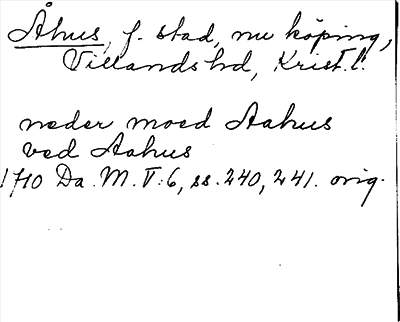 Åhus, f. stad, nu köping,
Villands hd, Krist. l.
neder moed Aahus
ved Aahus
1710 Da. M. V:6, ss. 240, 241. orig.